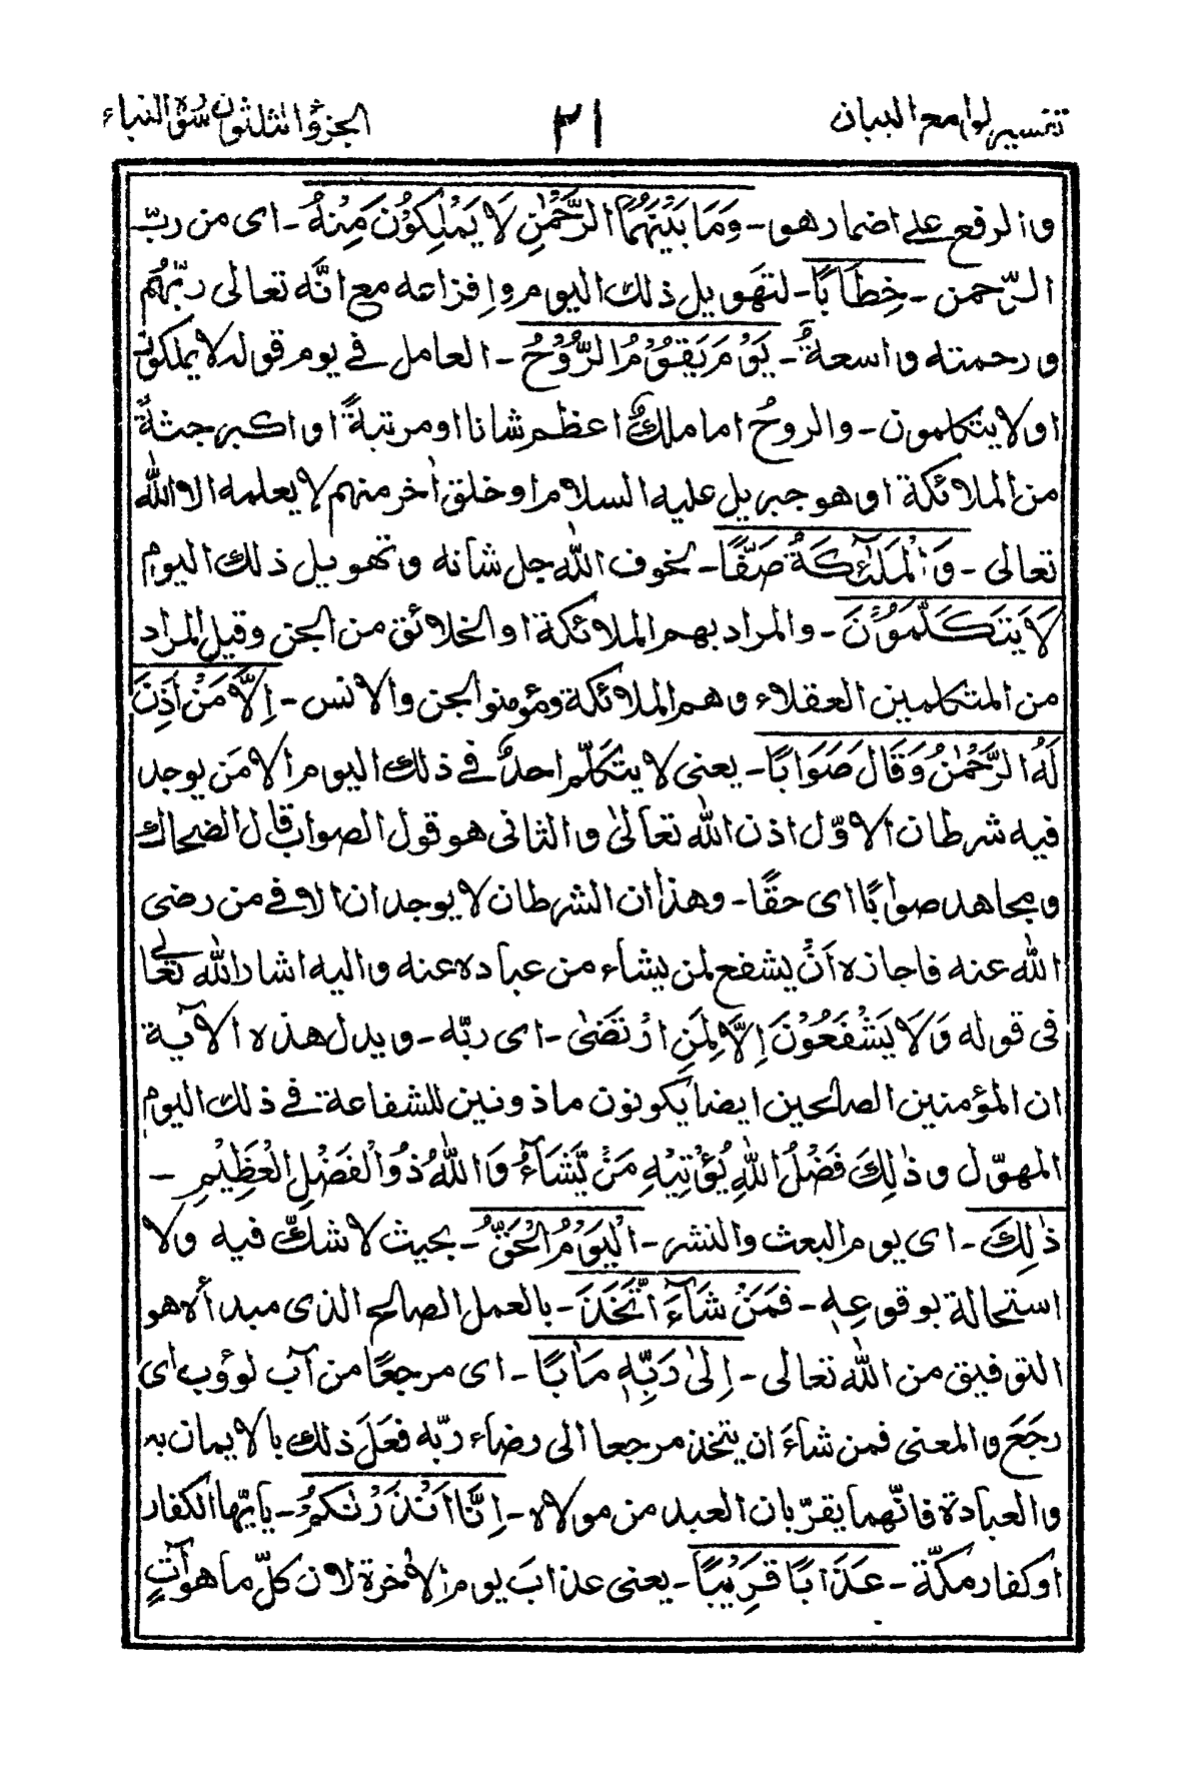 تفسير لوامع البيان
٣١
الجزؤ الثلثون سورة النباء
والرفع على اضمار هو - وَمَا بَيْنَهُمَا الرَّحْمٰنِ لَا يَمْلِكُوْنَ مِنْهُ - اى من ربّ
الرّحمن - خِطَابًا - لتهويل ذلك اليوم وافزاعه مع انّه تعالى ربّهم
ورحمته واسعةٌ - يَوْمَ يَقُوْمُ الرُّوْحُ - العامل فى يوم قوله لا يملكون
او لا يتكلمون - والروحُ اما ملكٌ اعظم شانا او مرتبةً او اكبر جثةً
من الملائكة او هو جبريل عليه السلام او خلق اٰخر منهم لا يعلمه الا الله
تعالى - وَالْمَلٰٓئِكَةُ صَفًّا - لخوف الله جل شانه وتهويل ذلك اليوم
لَا يَتَكَلَّمُوْنَ - والمراد بهم الملائكة او الخلائق من الجن وقيل المراد
من المتكلمين العقلاء وهم الملائكة ومؤمنو الجن والانس - اِلَّا مَنْ اَذِنَ
لَهُ الرَّحْمٰنُ وَقَالَ صَوَابًا - يعنى لا يتكلّم احدٌ فى ذلك اليوم الا مَن يوجد
فيه شرطان الاوّل اذن الله تعالىٰ والثانى هو قول الصواب قال الضحاك
ومجاهد صوابًا اى حقًا - وهذا ان الشرطان لا يوجدان الا فى من رضى
الله عنه فاجازه اَنْ يشفع لمن يشاء من عباده عنه واليه اشار الله تعالى
فى قوله وَلَا يَشْفَعُوْنَ اِلَّا لِمَنِ ارْتَضٰى - اى ربّه - ويدل هذه الآية
ان المؤمنين الصالحين ايضا يكونون ماذونين للشفاعة فى ذلك اليوم
المهوّل وذٰلِكَ فَضْلُ اللهِ يُؤْتِيْهِ مَنْ يَّشَآءُ وَاللهُ ذُو الْفَضْلِ الْعَظِيْمِ -
ذٰلِكَ - اى يوم البعث والنشر - الْيَوْمُ الْحَقُّ - بحيث لا شكّ فيه ولا
استحالة بوقوعه - فَمَنْ شَآءَ اتَّخَذَ - بالعمل الصالح الذى مبدأه هو
التوفيق من الله تعالى - اِلىٰ رَبِّهٖ مَاٰبًا - اى مرجعًا من آب يؤوب اى
رجَعَ والمعنى فمن شآءَ ان يتخذ مرجعا الى رضاء ربّه فعَلَ ذلك بالايمان به
والعبادة فانّهما يقرّبان العبد من مولاه - اِنَّا اَنْذَرْنٰكُمْ - يا يّها الكفار
او كفار مكّة - عَذَابًا قَرِيْبًا - يعنى عذابَ يوم الاٰخرة لان كلّ ما هو اٰتٍ